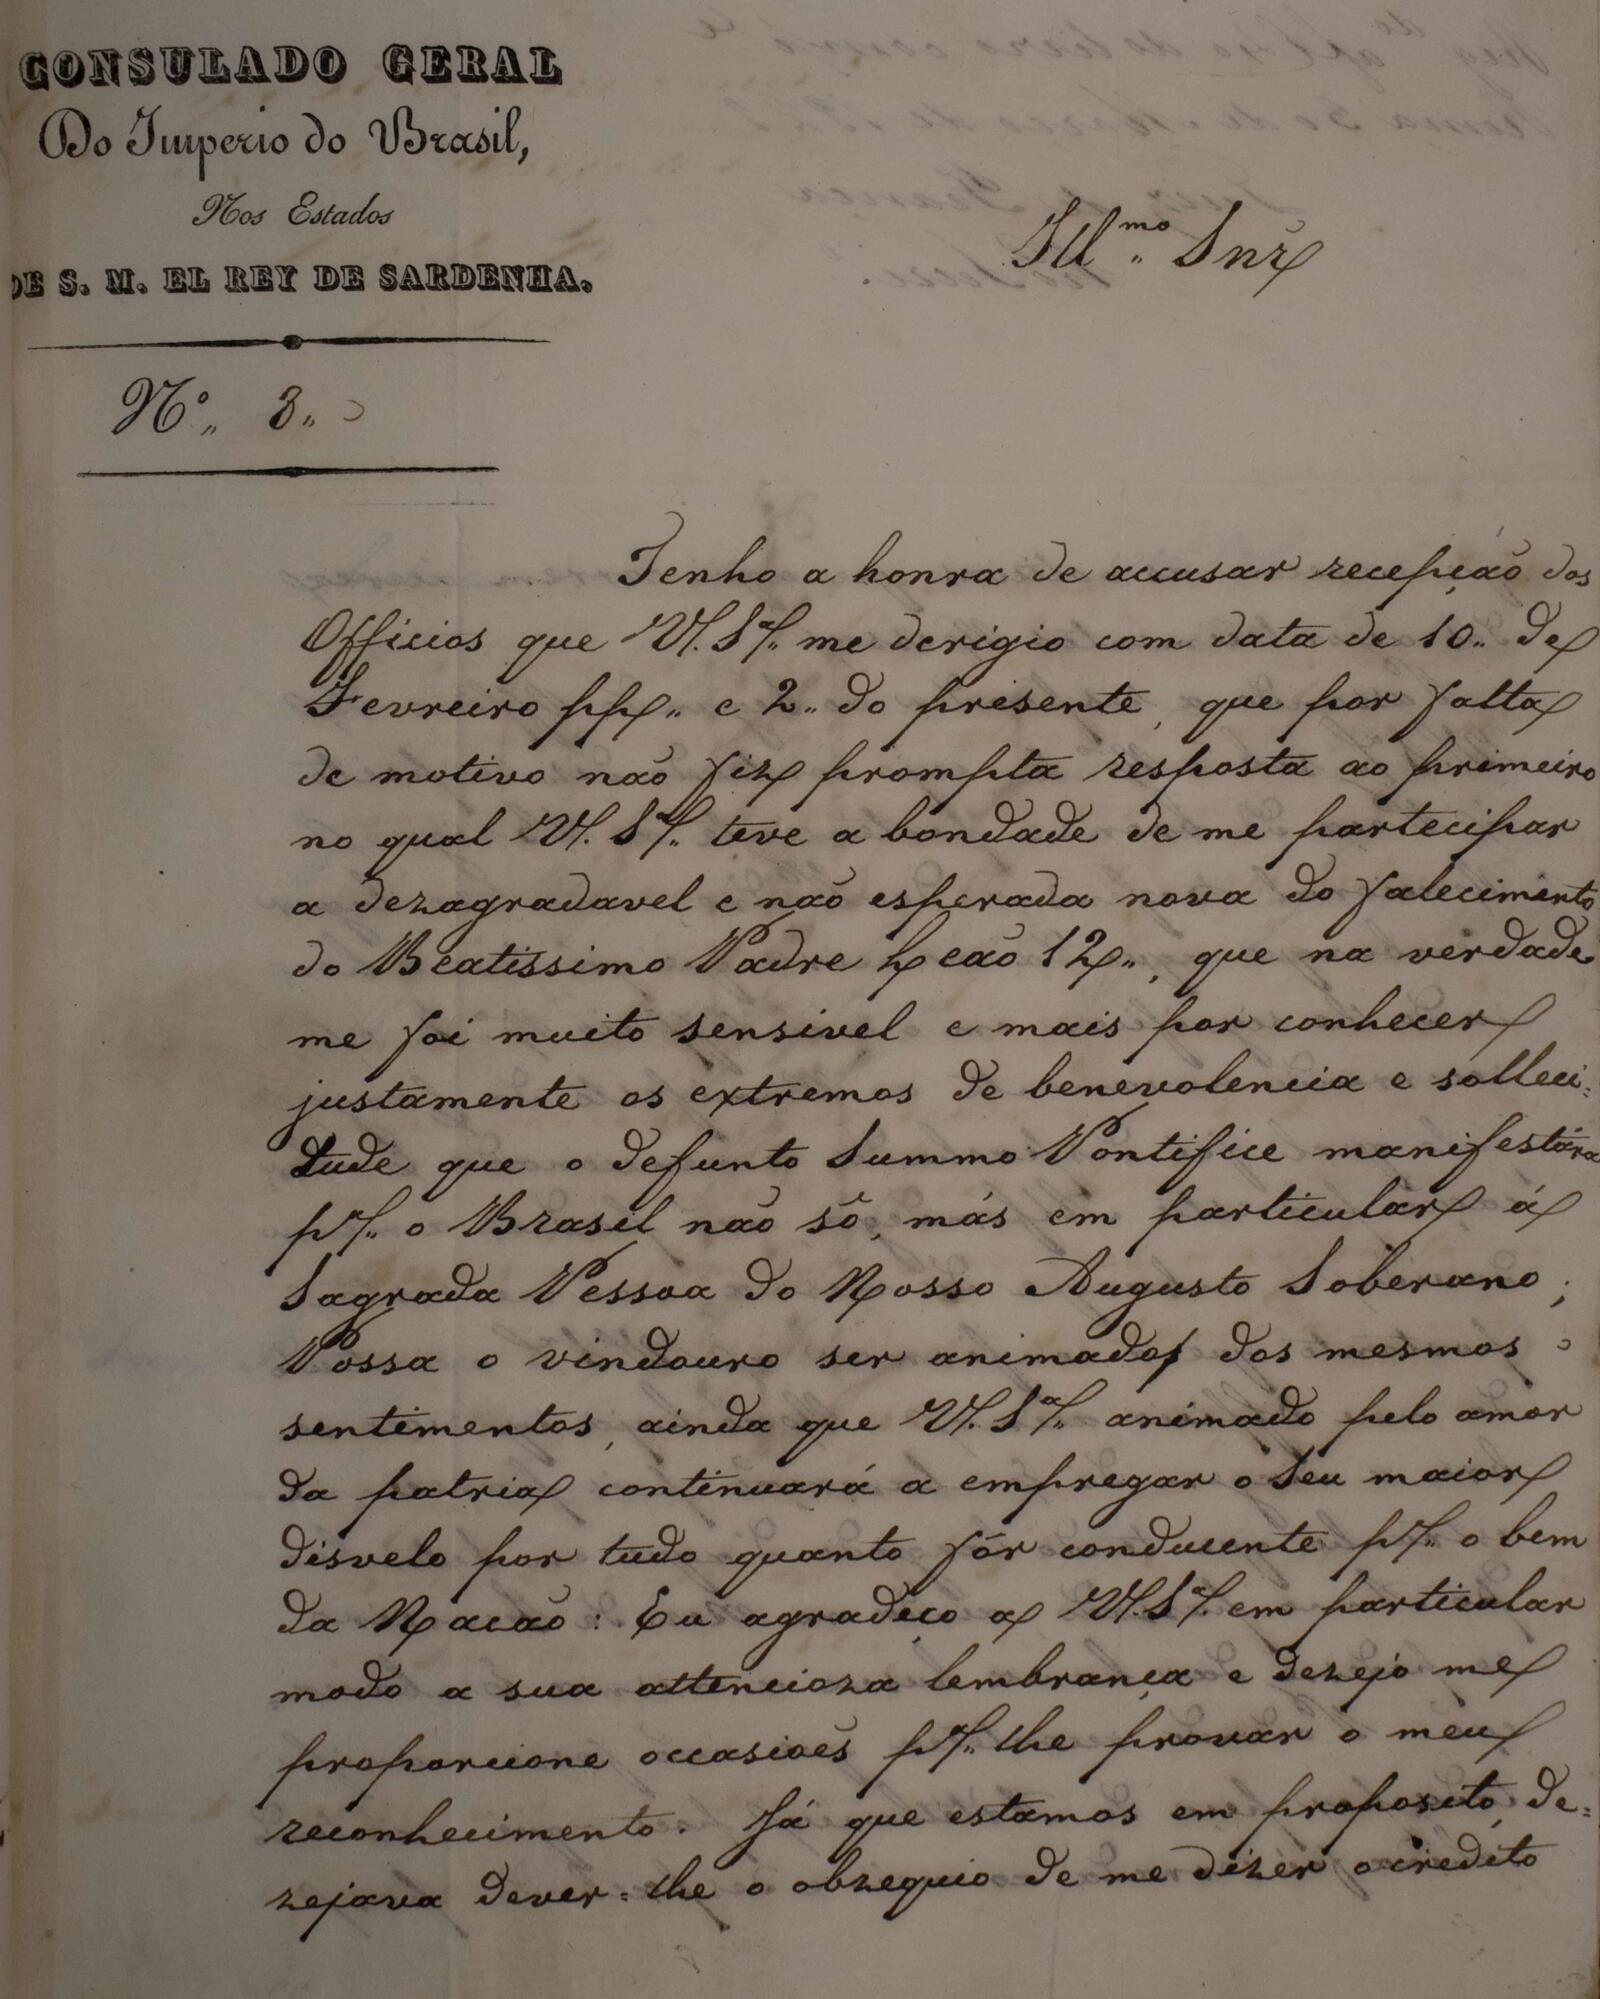 CONSULADO GERAL
Do Imperio do Brasil,
Nos Estados
DE S. M. EL REY DE SARDENHA.
Nº 3
Ill.mo Snr
Tenho a honra de accusar recepção dos
Officios que V. S.ª me derigio com data de 10 de
Fevreiro pp. e 2 do presente, que por falta
de motivo não fiz prompta resposta ao primeiro
no qual V. S.ª teve a bondade de me partecipar
a dezagradavel e não esperada nova do falecimento
do Beatissimo Padre Leão 12, que na verdade
me foi muito sensivel e mais por conhecer
justamente os extremos de benevolencia e solleci=
tude que o defunto Summo Pontifice manifestára
p.ª o Brasil não só, más em particular á
Sagrada Pessoa do Nosso Augusto Soberano;
Possa o vindouro ser animado dos mesmos
sentimentos, ainda que V. S.ª animado pelo amor
da patria continuará a empregar o Seu maior
disvelo por tudo quanto fôr conducente p.ª o bem
da Nacão: Eu agradeço a V. S.ª em particular
modo a sua attencioza lembrança e dezejo me
proporcione occasioẽs p.ª lhe provar o meu
reconhecimento. Já que estamos em proposito, de=
zejava dever=lhe o obzequio de me dizer o credito